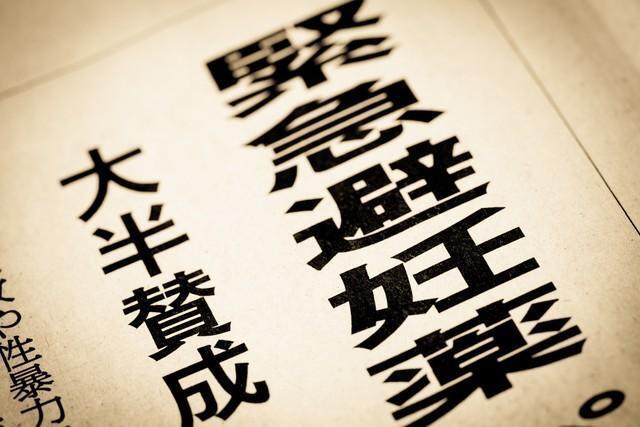 緊急避妊薬。
大半賛成
性暴力